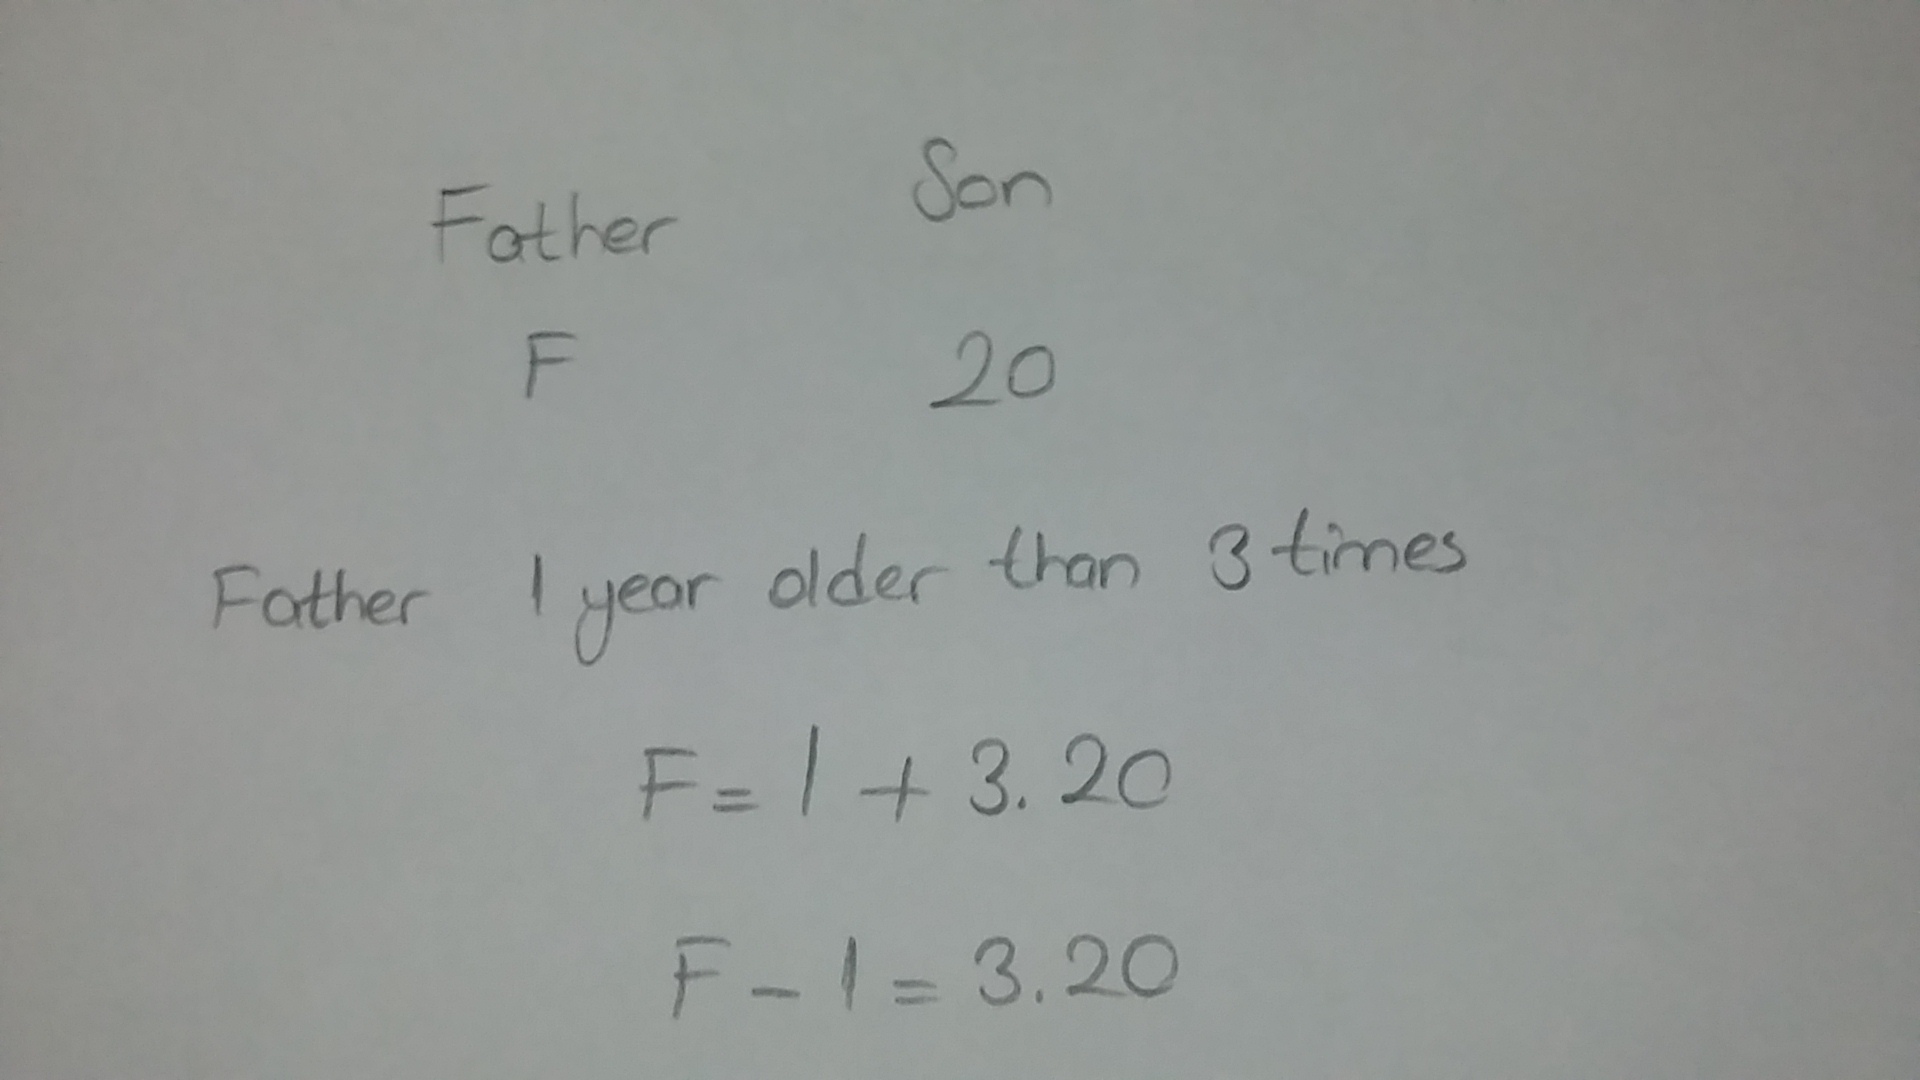 Father Son
F 20
Father 1 year older than 3 times
F = 1 + 3. 20
F - 1 = 3. 20